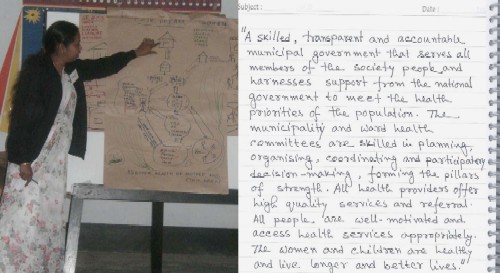 Subject:
Date:
"A skilled, transparent and accountable
municipal government that serves all
members of the society people and
harnesses support from the national
government to meet the health
priorities of the population. The
municipality and ward health
committees are skilled in planning,
organising, coordinating and participatory
decision-making, forming the pillars
of strength. All health providers offer
high quality services and referral.
All people are well-motivated and
access health services appropriately.
The women and children are healthy
and live longer and better lives."